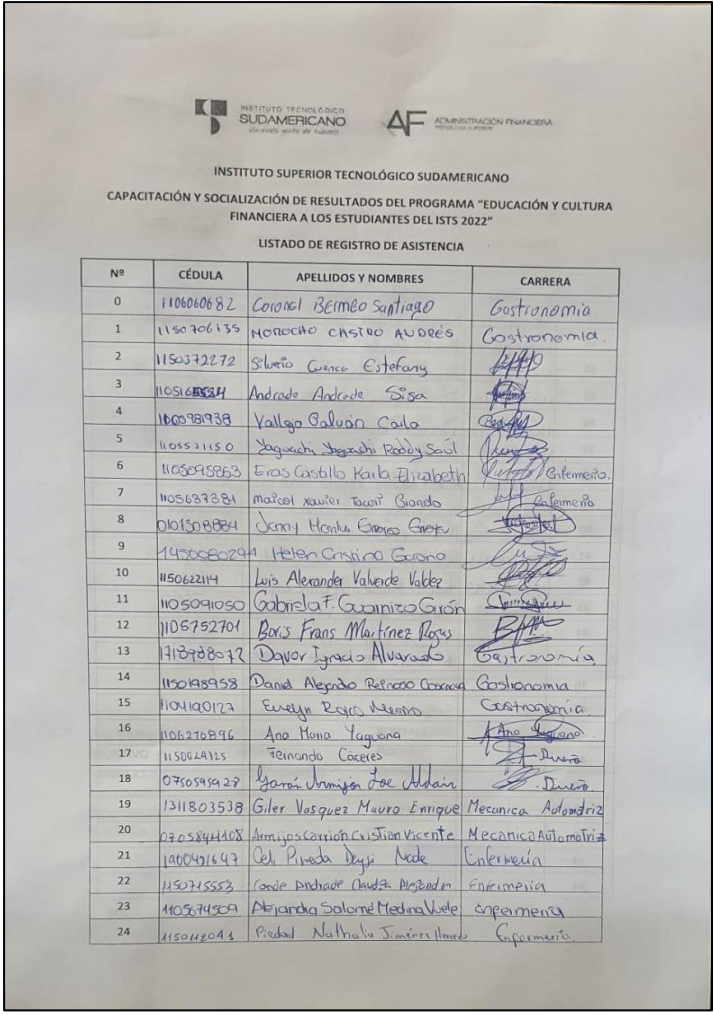 INSTITUTO TECNOLÓGICO
SUDAMERICANO
AF ADMINISTRACIÓN FINANCIERA
INSTITUTO SUPERIOR TECNOLÓGICO SUDAMERICANO
CAPACITACIÓN Y SOCIALIZACIÓN DE RESULTADOS DEL PROGRAMA "EDUCACIÓN Y CULTURA
FINANCIERA A LOS ESTUDIANTES DEL ISTS 2022"
LISTADO DE REGISTRO DE ASISTENCIA
Nº CÉDULA APELLIDOS Y NOMBRES CARRERA
0 1106060682 Coronel Bermeo Santiago Gastronomia
1 1150706135 MOROCHO CASTRO ANDRÉS Gastronomia.
2 1150372272 Silverio Cuenca Estefany
3 Andrade Andrade Sisa
4 Vallejo Galván Carla
5 Yaguachi Yaguachi Roddy Saúl
6 1105095863 Eras Castillo Karla Elizabeth Enfermeria.
7 1105637381 Maicol Xavier Enfermeria
8 0101308884 Jenny
9 Helen Cristina
10 1150622114 Luis Alexander Valverde Valdez
11 1105091050 Gabriela F. Guarnizo Girón
12 1105752701 Boris Frans Martínez Rojas
13 1718988072 Davor Ignacio Alvarado Gastronomía
14 1150198958 Daniel Alejandro Reinoso Gastronomia
15 1104190127 Evelyn Gastronomía.
16 1106276896 Ana Maria Yaguana Ana Yaguana.
17 Fernando Cáceres
18 0750595928
19 1311803538 Giler Vasquez Mauro Enrique Mecanica Automotriz
20 0705844108 Armijos Carrión Cristian Vicente Mecanica Automotriz
21 Pineda Enfermería
22 1150715553 Conde Andrade Claudia Alejandra Enfermeria
23 1105674509 Alejandra Salomé Medina Enfermería
24 Piedad Nathalia Jiménez Enfermería.